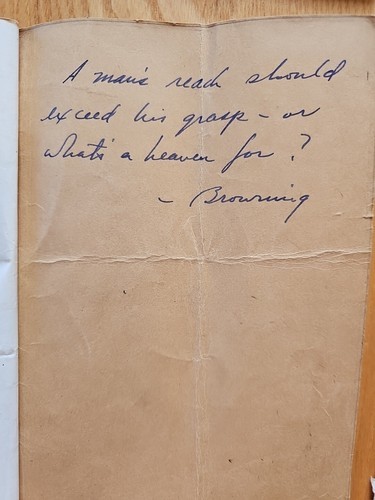 A man's reach should
exceed his grasp - or
what's a heaven for?
- Browning